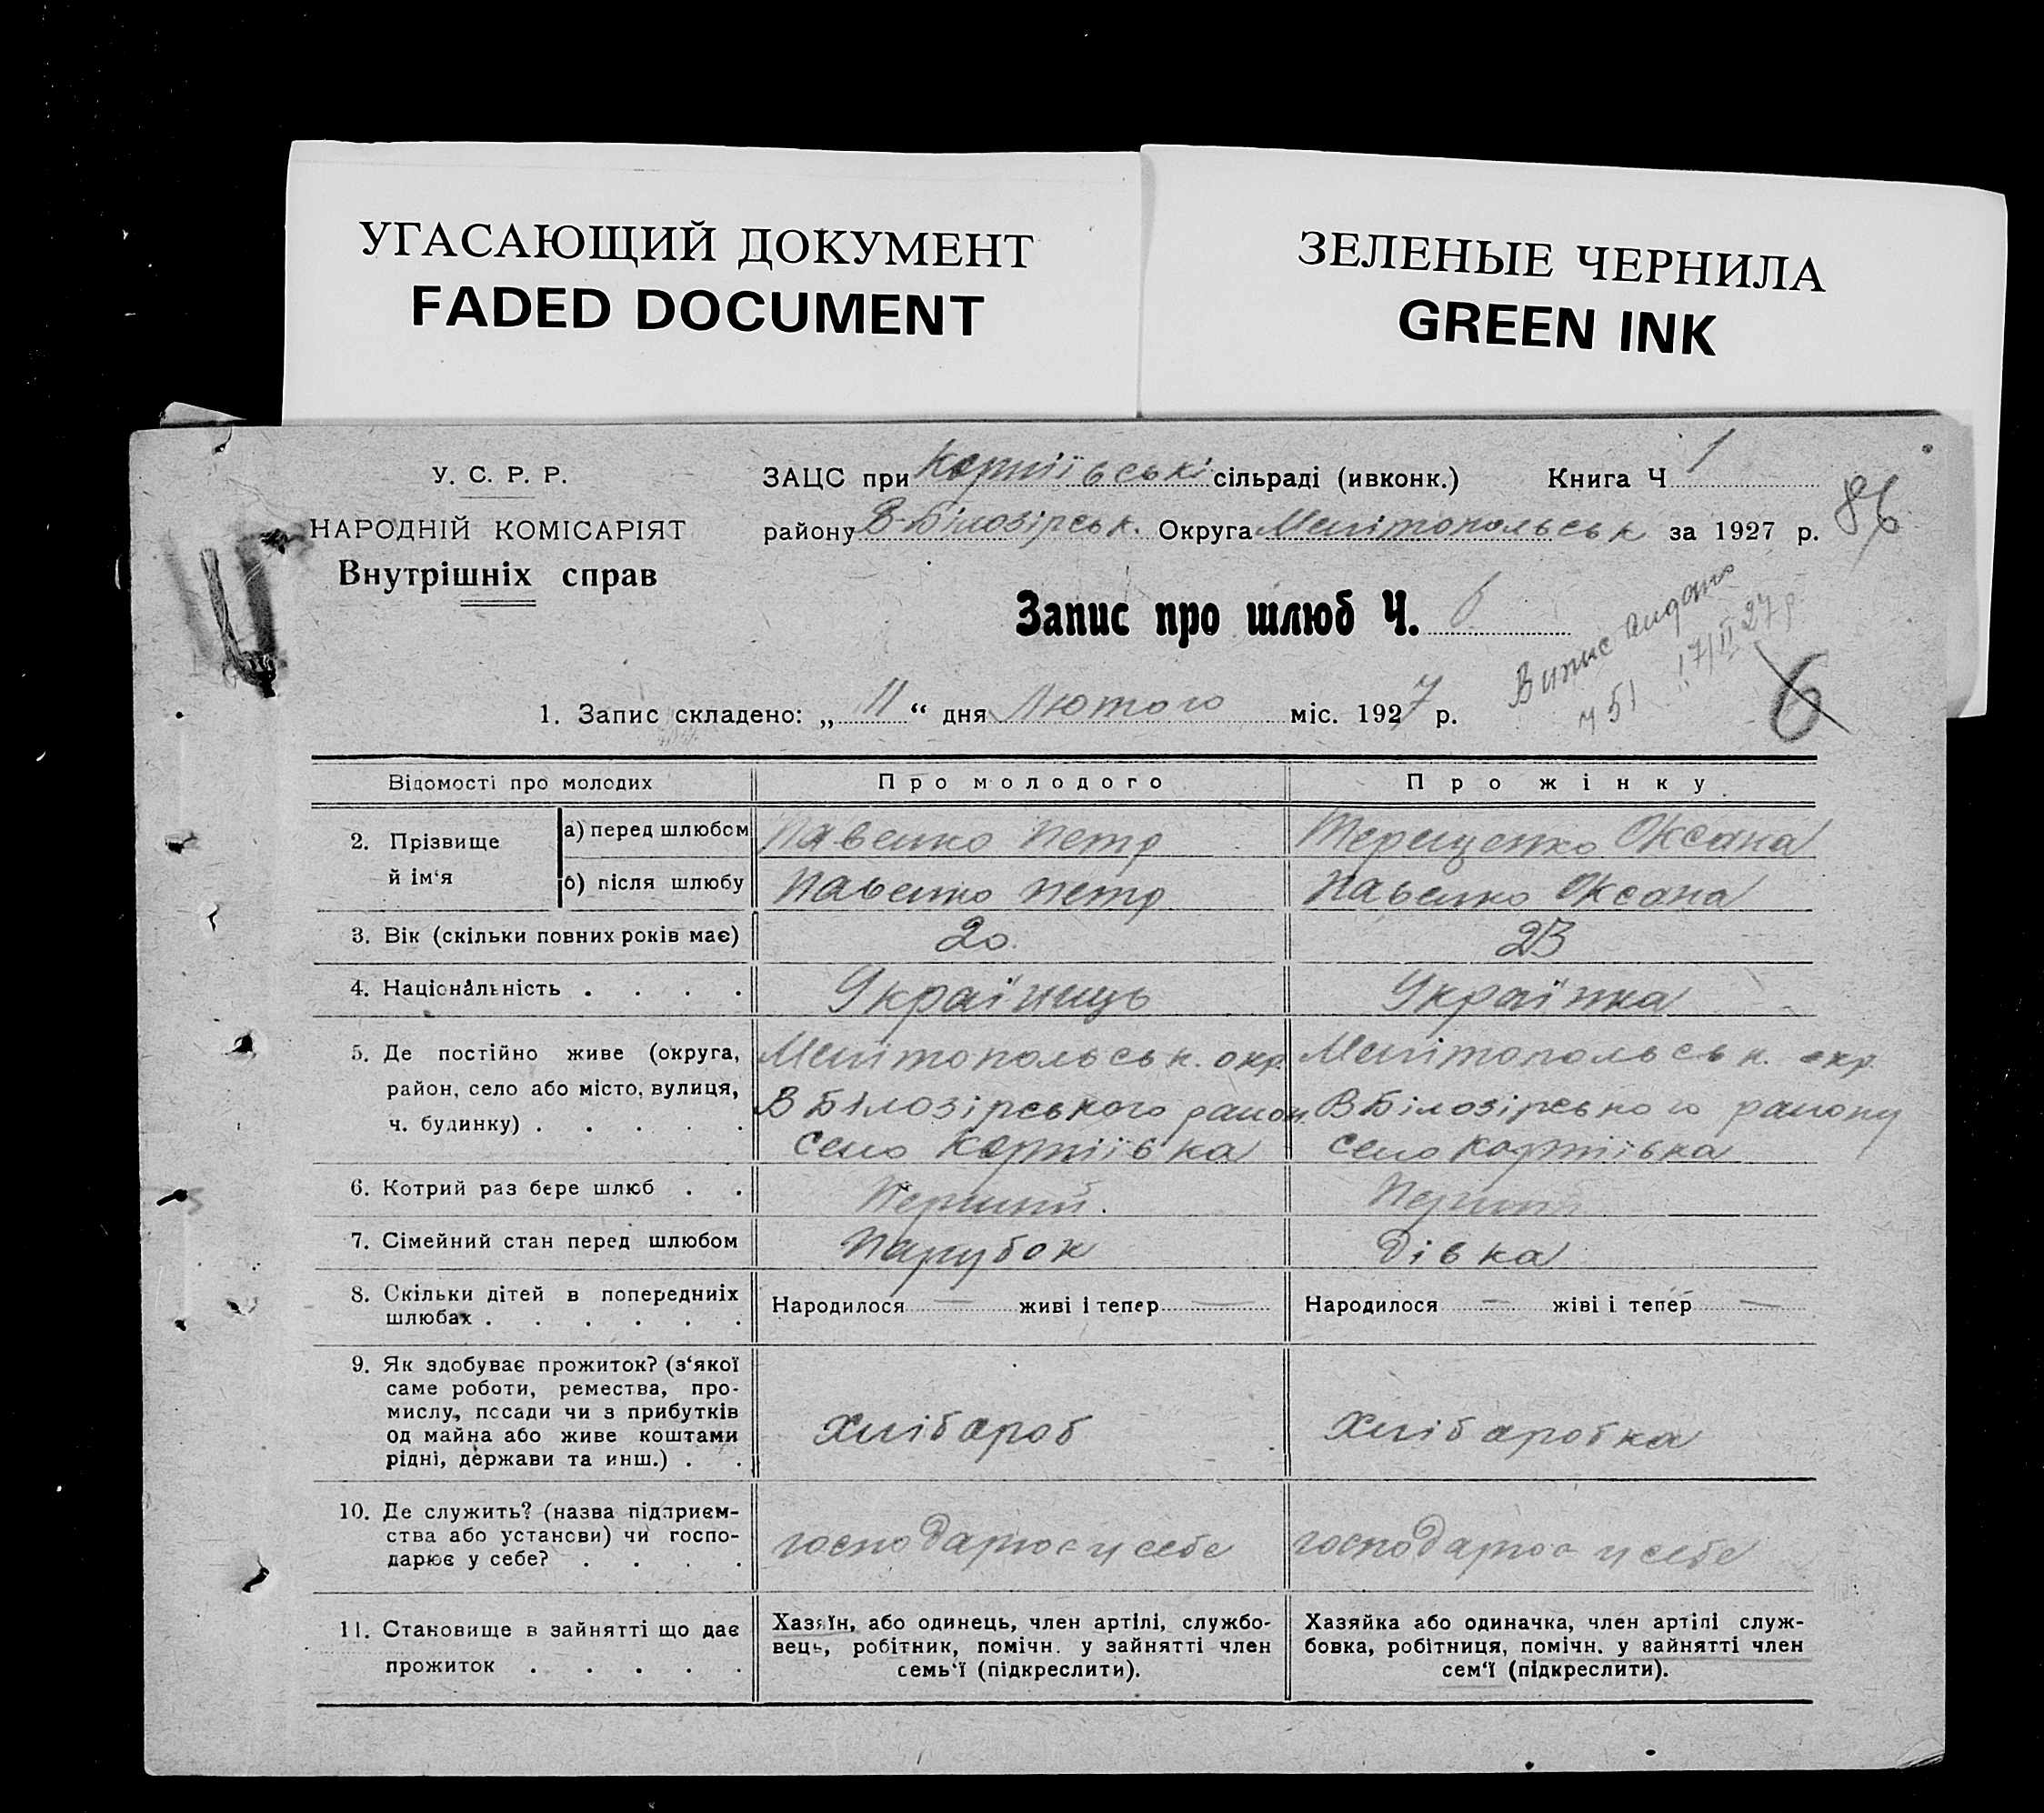 УГАСАЮЩИЙ ДОКУМЕНТ
FADED DOCUMENT
ЗЕЛЕНЫЕ ЧЕРНИЛА
GREEN INK
У. С. Р. Р.
НАРОДНІЙ КОМІСАРІЯТ
Внутрішніх справ
ЗАЦС при Корніївські сільраді (ивконк.) Книга Ч 1
району В-Білозірськ. Округа Мелітопольськ за 1927 р.
86
Запис про шлюб Ч. 6
Випис видано
ч 51 "17/II 27 р.
6
1. Запис складено: „ 11 “ дня Лютого міс. 1927 р.
Відомості про молодих Про молодого Про жінку
2. Прізвище й ім‘я а) перед шлюбом Павенко Петр Терещенко Оксана
б) після шлюбу Павенко Петр Павенко Оксана
3. Вік (скільки повних років має) 20 23
4. Національність . . . . Українець Українка
5. Де постійно живе (округа, Мелітопольськ. окр. Мелітопольськ. окр.
район, село або місто, вулиця, В Білозірського район В Білозірського району
ч. будинку) . . . . . село Корніївка село Корніївка
6. Котрий раз бере шлюб . . Перший. Перший
7. Сімейний стан перед шлюбом Парубок Дівка
8. Скільки дітей в попередниіх шлюбах . . . . . . Народилося — живі і тепер — Народилося — жіві і тепер —
9. Як здобуває прожиток? (з‘якої
саме роботи, ремества, про-
мислу, посади чи з прибутків
од майна або живе коштами
рідні, держави та инш.) . . Хлібароб Хлібаробка
10. Де служить? (назва підприєм-
ства або установи) чи госпо-
дарює у себе? . . . . господарює у себе господарює у себе
11. Становище в зайнятті що дає
прожиток . . . . .
Хазяїн, або одинець, член артілі, службо-
вець, робітник, помічн. у зайнятті член
семь‘ї (підкреслити).
Хазяйка або одиначка, член артілі служ-
бовка, робітниця, помічн. у зайнятті член
сем‘ї (підкреслити).